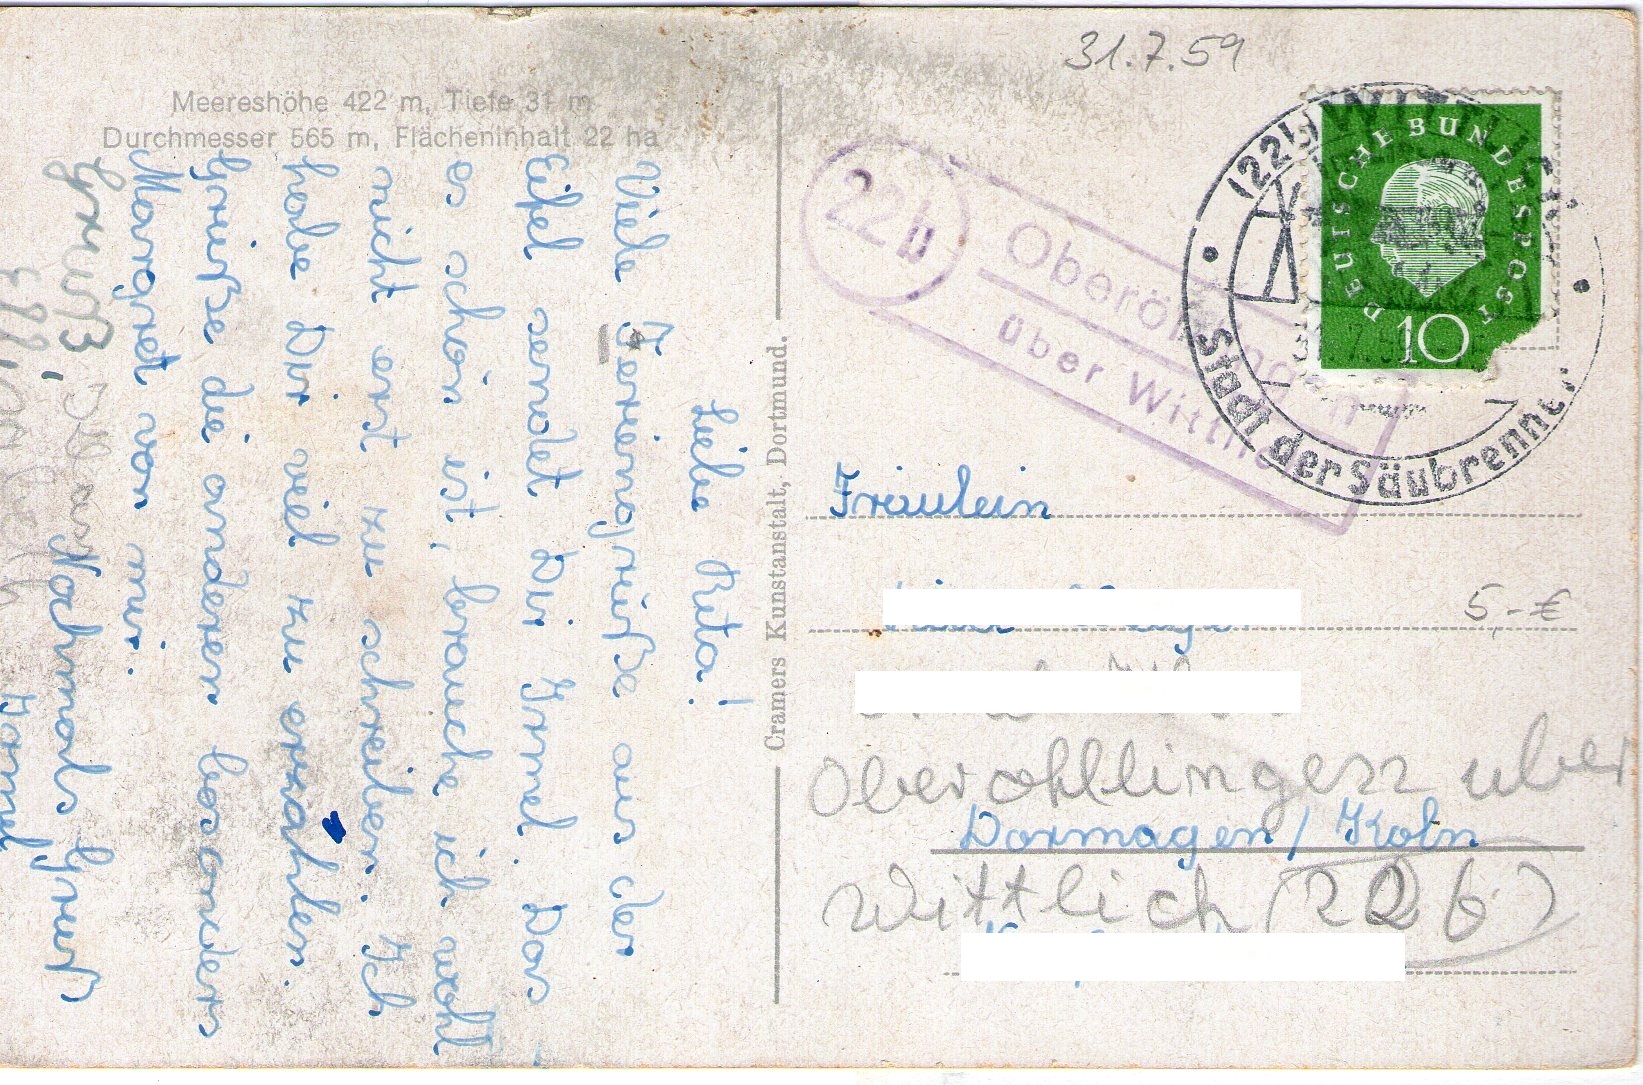 31.7.59
Meereshöhe 422 m, Tiefe 31 m
Durchmesser 565 m, Flächeninhalt 22 ha
Liebe Rita!
Viele Feriengrüße aus der
Eifel sendet Dir Irmel. Das
es schön ist, brauche ich wohl
nicht erst zu schreiben. Ich
habe Dir viel zu erzählen.
Grüße die anderen besonders
Margret von mir.
Nochmals Gruß
Irmel
Gruß
Cramers Kunstanstalt, Dortmund.
22b
Oberöfflingen
über Wittlich
(22b) WITTLICH
31.7.59
Stadt der Säubrenner
DEUTSCHE BUNDESPOST
10
Fräulein
5,-€
Oberöhllingen über
Dormagen / Köln
Wittlich (22b)